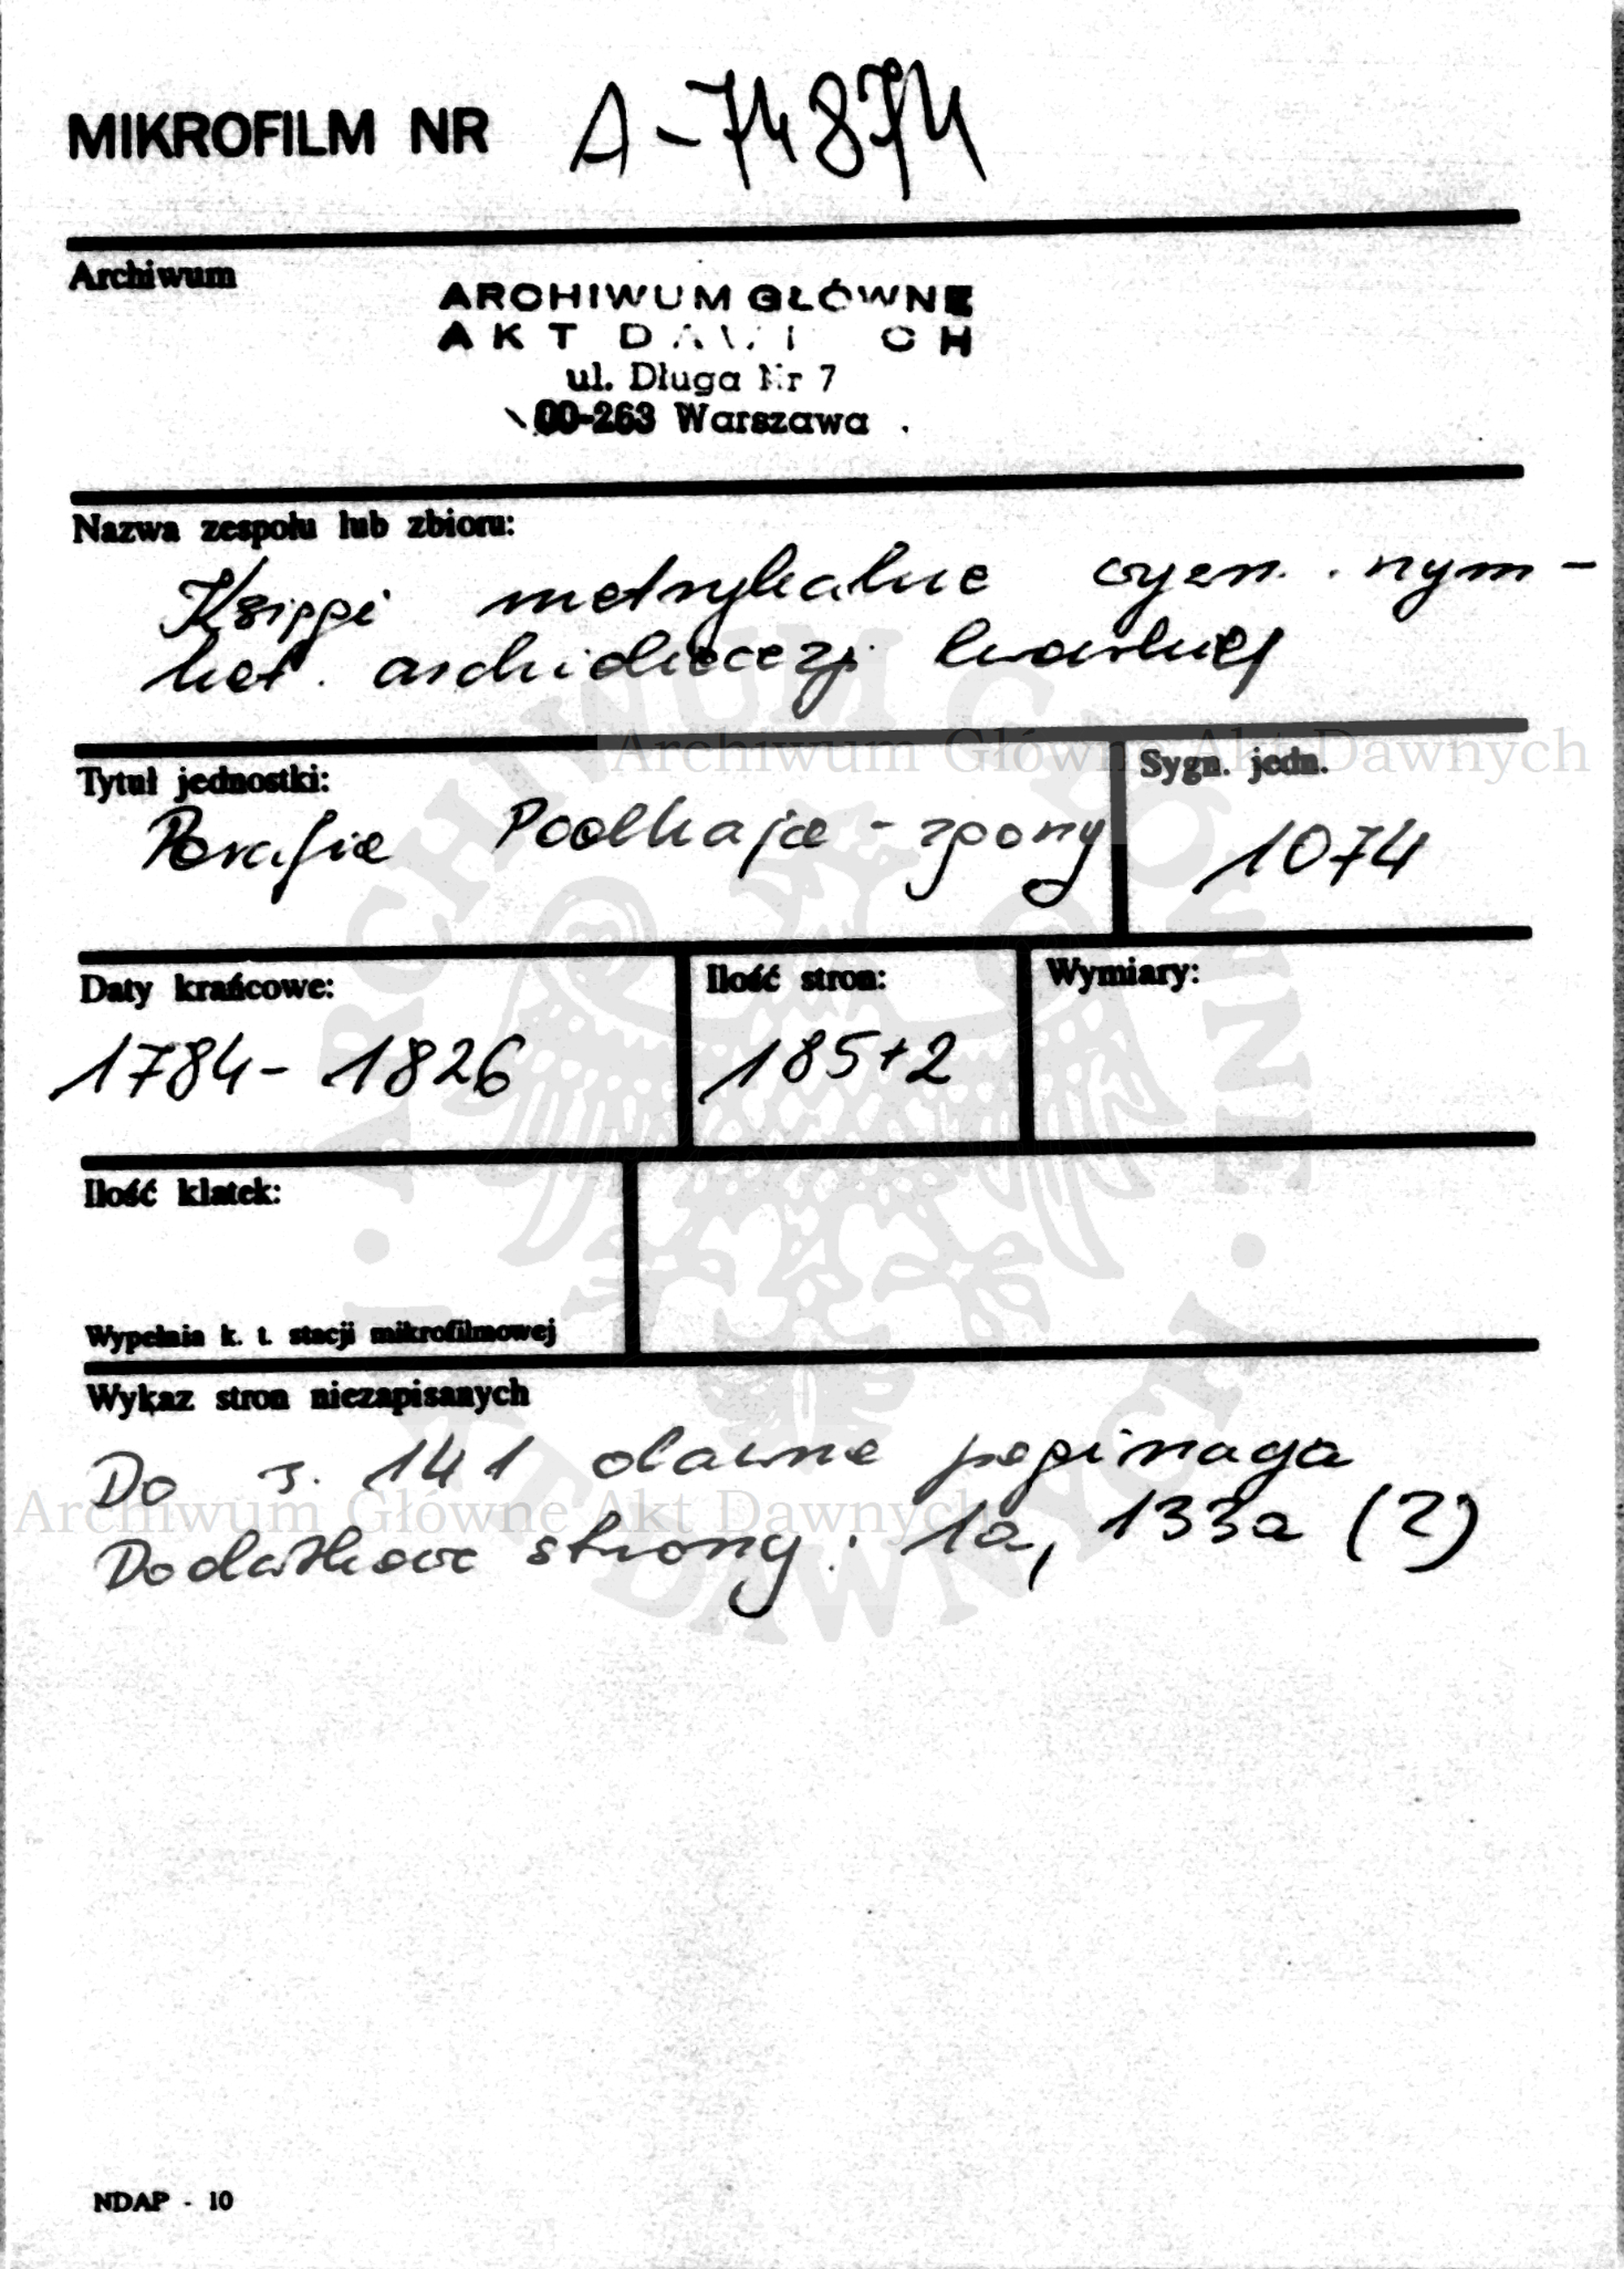 MIKROFILM NR A-74874
Archiwum
ARCHIWUM GŁÓWNE
AKT DAWNYCH
ul. Długa Nr 7
00-263 Warszawa
Nazwa zespołu lub zbioru:
Księgi metrykalne rzym-
kat. archidiecezji lwowskiej
Tytuł jednostki:
Parafia Podhajce - zgony
Sygn. jedn.
1074
Daty krańcowe:
1784 - 1826
Ilość stron:
185+2
Wymiary:
Ilość klatek:
Wypełnia k. t. stacji mikrofilmowej
Wykaz stron niezapisanych
Do s. 141 dawna paginacja
Dodatkowe strony: 1a, 133a (2)
NDAP - 10
Archiwum Główne Akt Dawnych
Archiwum Główne Akt Dawnych
ARCHIWUM GŁÓWNE AKT DAWNYCH